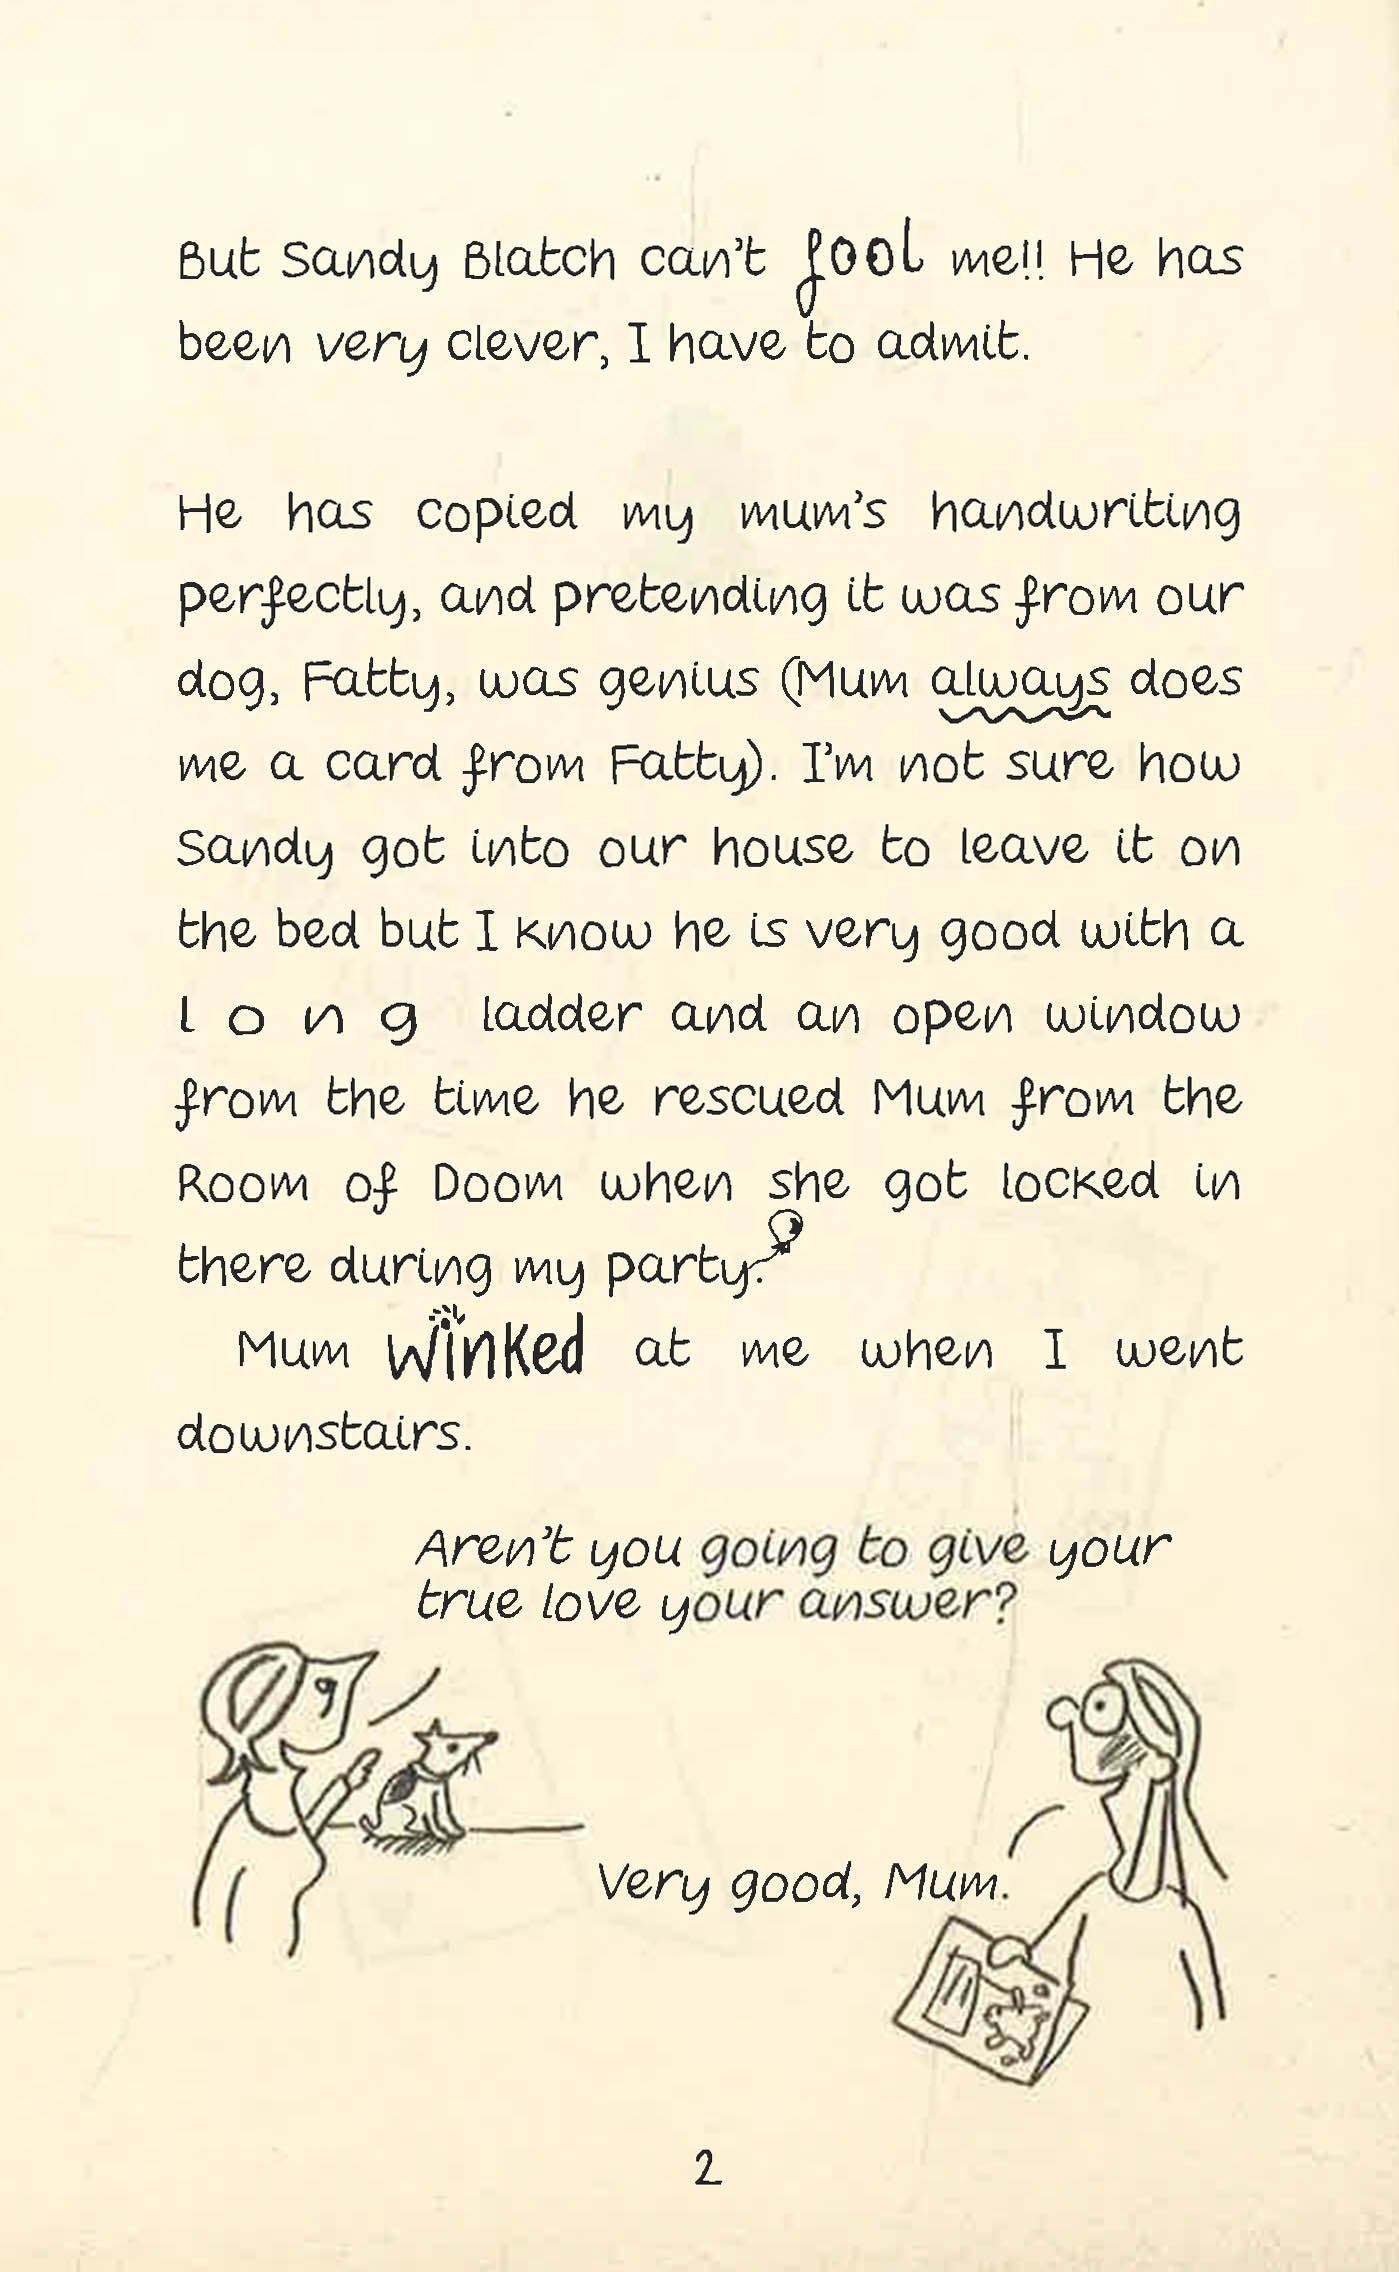 But Sandy Blatch can't fool me!! He has
been very clever, I have to admit.
He has copied my mum's handwriting
perfectly, and pretending it was from our
dog, Fatty, was genius (Mum always does
me a card from Fatty). I'm not sure how
Sandy got into our house to leave it on
the bed but I know he is very good with a
long ladder and an open window
from the time he rescued Mum from the
Room of Doom when she got locked in
there during my party.
Mum winked at me when I went
downstairs.
Aren't you going to give your
true love your answer?
Very good, Mum.
2